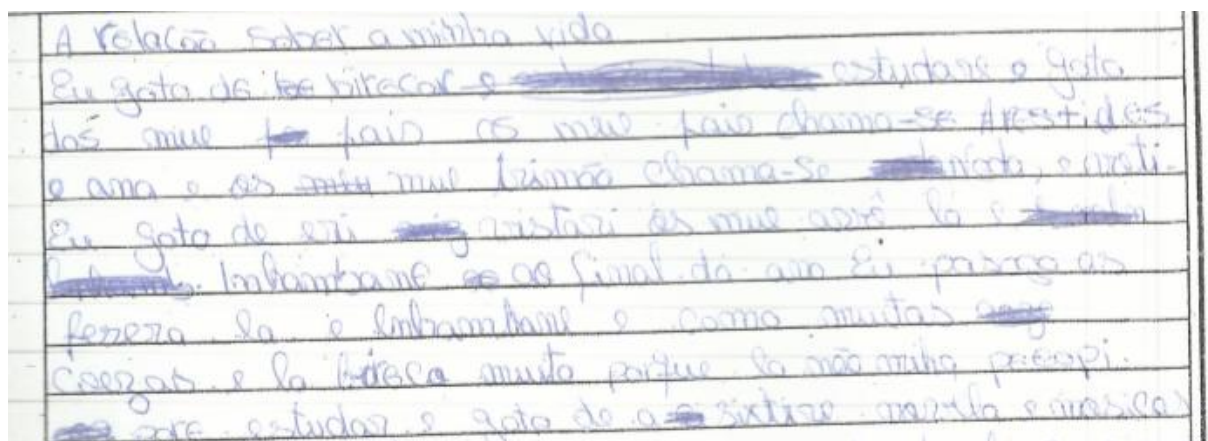 A relação sober a minha vida
Eu gota de birecar e estudare e gota
dos mue pais os mue pais chama-se Arestides
e ana e os mue irimão chama-se
Eu gota de eri os mue avvô la e
Inhambane ao final do ano Eu passo as
fereza la e Inhambane e como muitas
coezas e la bireca muito porque la não
estudar e gota de a sixtire e musicas